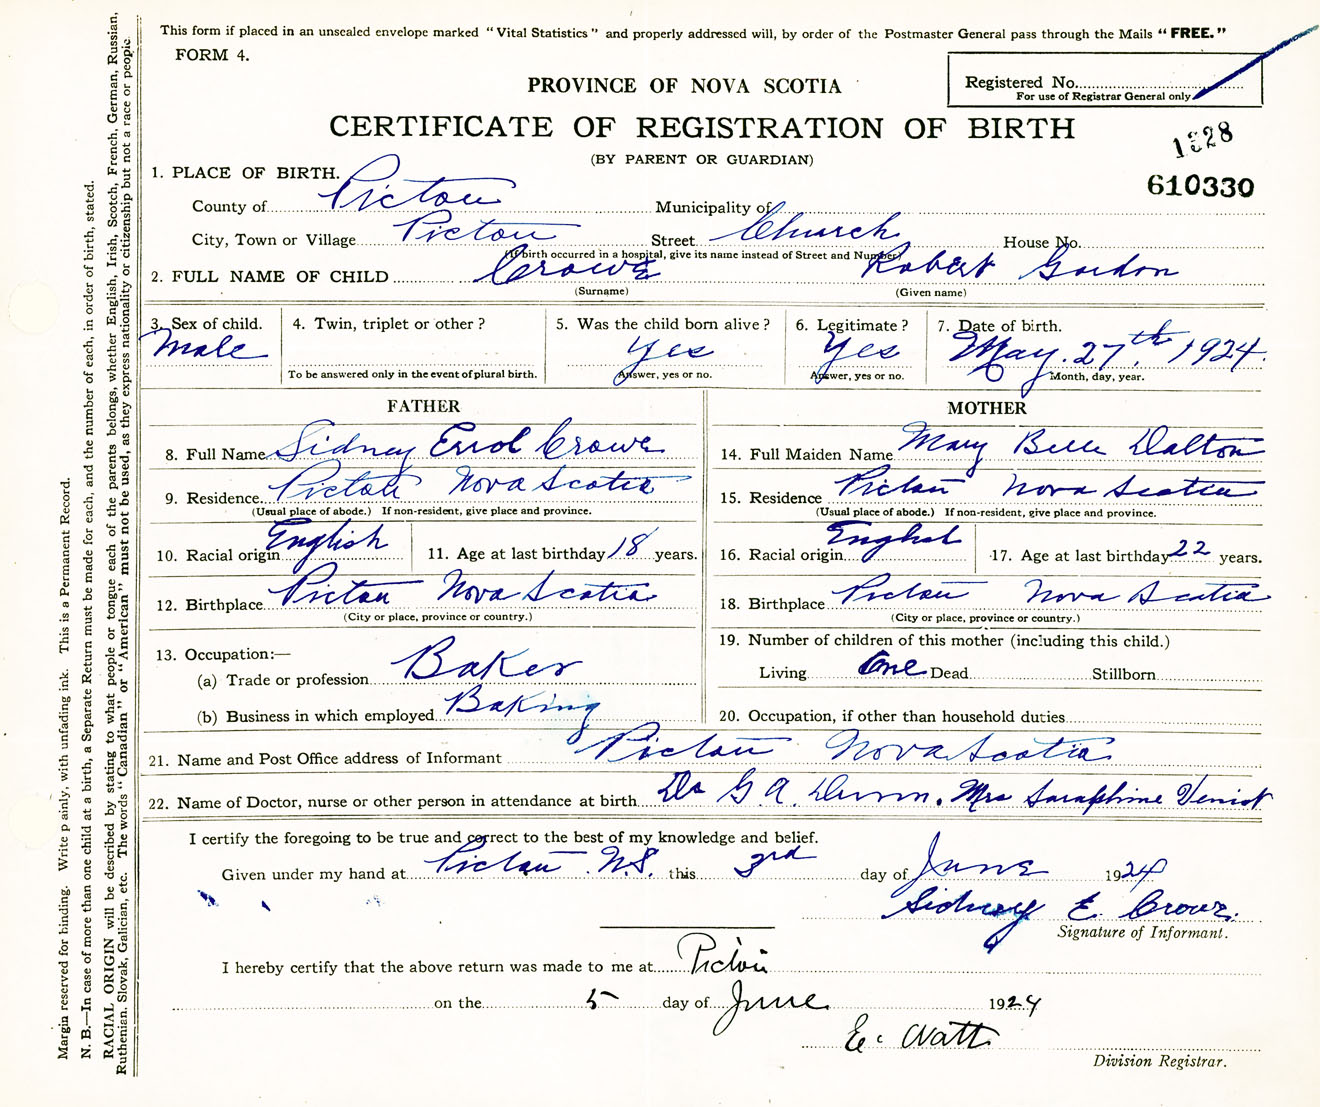 This form if placed in an unsealed envelope marked "Vital Statistics" and properly addressed will, by order of the Postmaster General pass through the Mails "FREE."
FORM 4.
PROVINCE OF NOVA SCOTIA
Registered No.
For use of Registrar General only
CERTIFICATE OF REGISTRATION OF BIRTH
1328
(BY PARENT OR GUARDIAN)
610330
1. PLACE OF BIRTH.
County of Pictou Municipality of
City, Town or Village Pictou Street Church House No.
(If birth occurred in a hospital, give its name instead of Street and Number)
2. FULL NAME OF CHILD Crowe Robert Gordon
(Surname) (Given name)
3. Sex of child. 4. Twin, triplet or other? 5. Was the child born alive? 6. Legitimate? 7. Date of birth.
Male Yes Yes May. 27th, 1924.
To be answered only in the event of plural birth. Answer, yes or no. Answer, yes or no. Month, day, year.
FATHER
8. Full Name Sidney Errol Crowe
9. Residence Pictou Nova Scotia
(Usual place of abode.) If non-resident, give place and province.
10. Racial origin English 11. Age at last birthday 18 years.
12. Birthplace Pictou Nova Scotia
(City or place, province or country.)
13. Occupation:—
(a) Trade or profession Baker
(b) Business in which employed Baking
MOTHER
14. Full Maiden Name Mary Belle Dalton
15. Residence Pictou Nova Scotia
(Usual place of abode.) If non-resident, give place and province.
16. Racial origin English 17. Age at last birthday 22 years.
18. Birthplace Pictou Nova Scotia
(City or place, province or country.)
19. Number of children of this mother (including this child.)
Living One Dead Stillborn
20. Occupation, if other than household duties
21. Name and Post Office address of Informant Pictou Nova Scotia
22. Name of Doctor, nurse or other person in attendance at birth Dr G. A. Dunn. Mrs Saraphine Veniot
I certify the foregoing to be true and correct to the best of my knowledge and belief.
Given under my hand at Pictou N.S. this 3rd day of June 1924
Sidney E. Crowe.
Signature of Informant.
I hereby certify that the above return was made to me at Pictou
on the 5 day of June 1924
E. C. Watt
Division Registrar.
Margin reserved for binding. Write plainly, with unfading ink. This is a Permanent Record.
N. B.—In case of more than one child at a birth, a Separate Return must be made for each, and the number of each, in order of birth, stated.
RACIAL ORIGIN will be described by stating to what people or tongue each of the parents belongs, whether English, Irish, Scotch, French, German, Russian,
Ruthenian, Slovak, Galician, etc. The words "Canadian" or "American" must not be used, as they express nationality or citizenship but not a race or people.